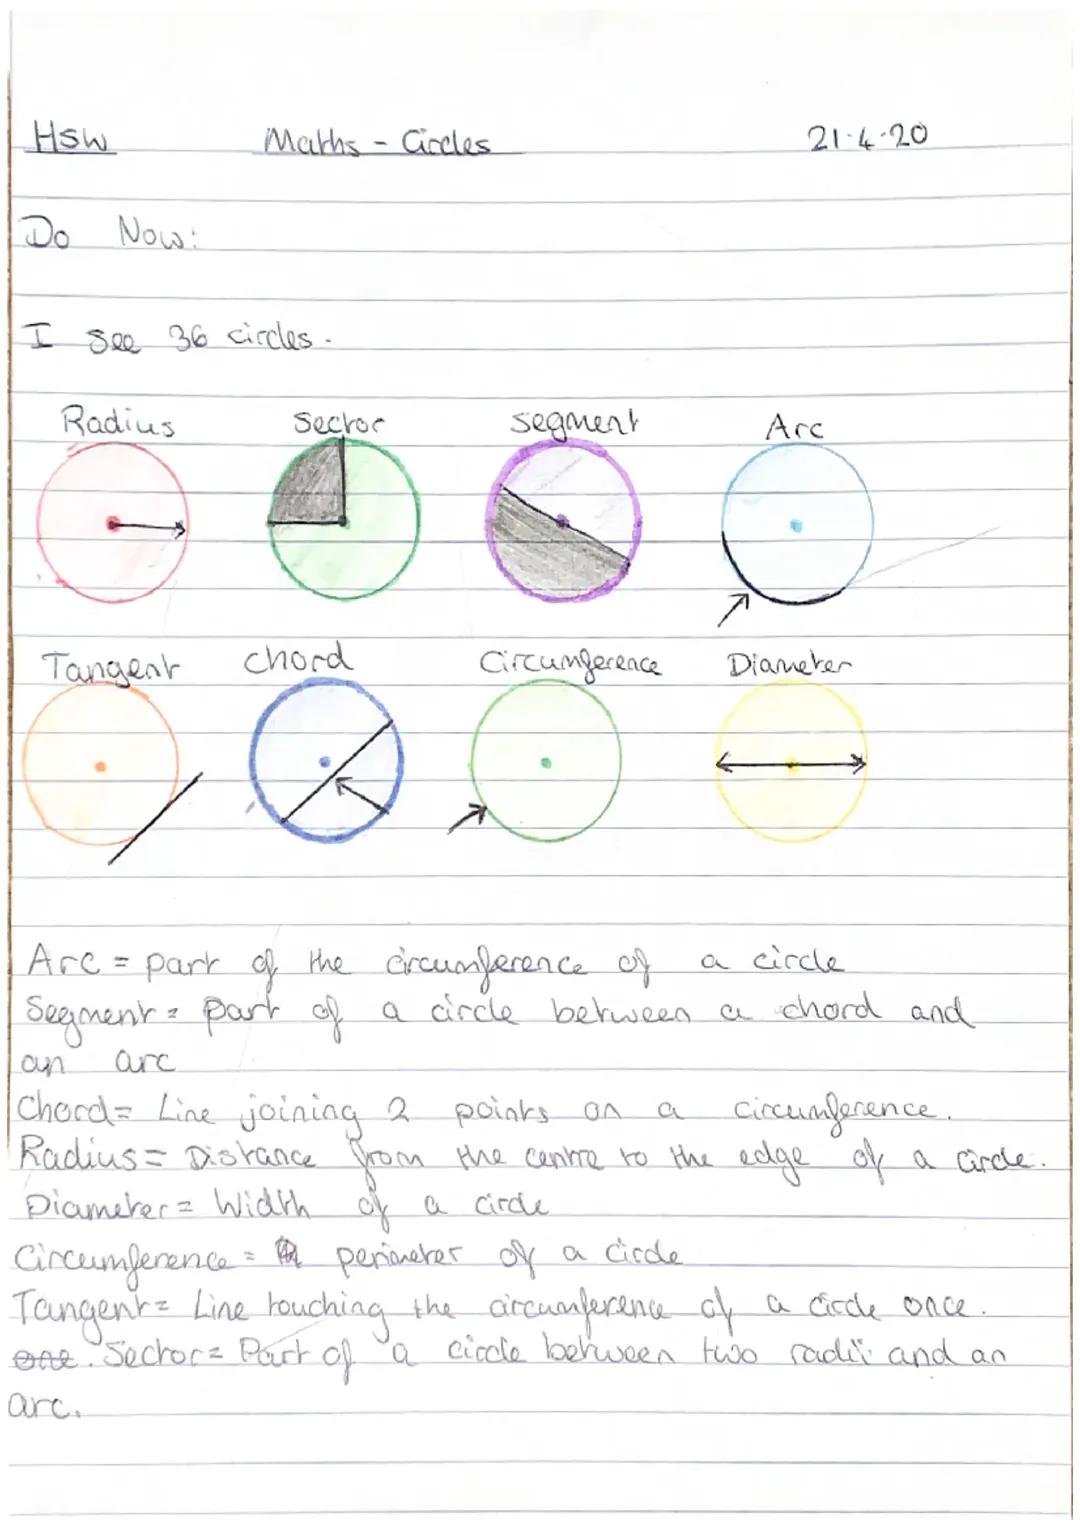 HSW Maths - Circles 21.4.20
Do Now:
I see 36 circles.
Radius Sector Segment Arc
Tangent chord Circumference Diameter
Arc = part of the circumference of a circle
Segment = part of a circle between a chord and
an arc
Chord = Line joining 2 points on a circumference.
Radius = Distance from the centre to the edge of a circle.
Diameter = Width of a circle
Circumference = perimeter of a circle
Tangent = Line touching the circumference of a circle once.
one. Sector = Part of a circle between two radii and an
arc.